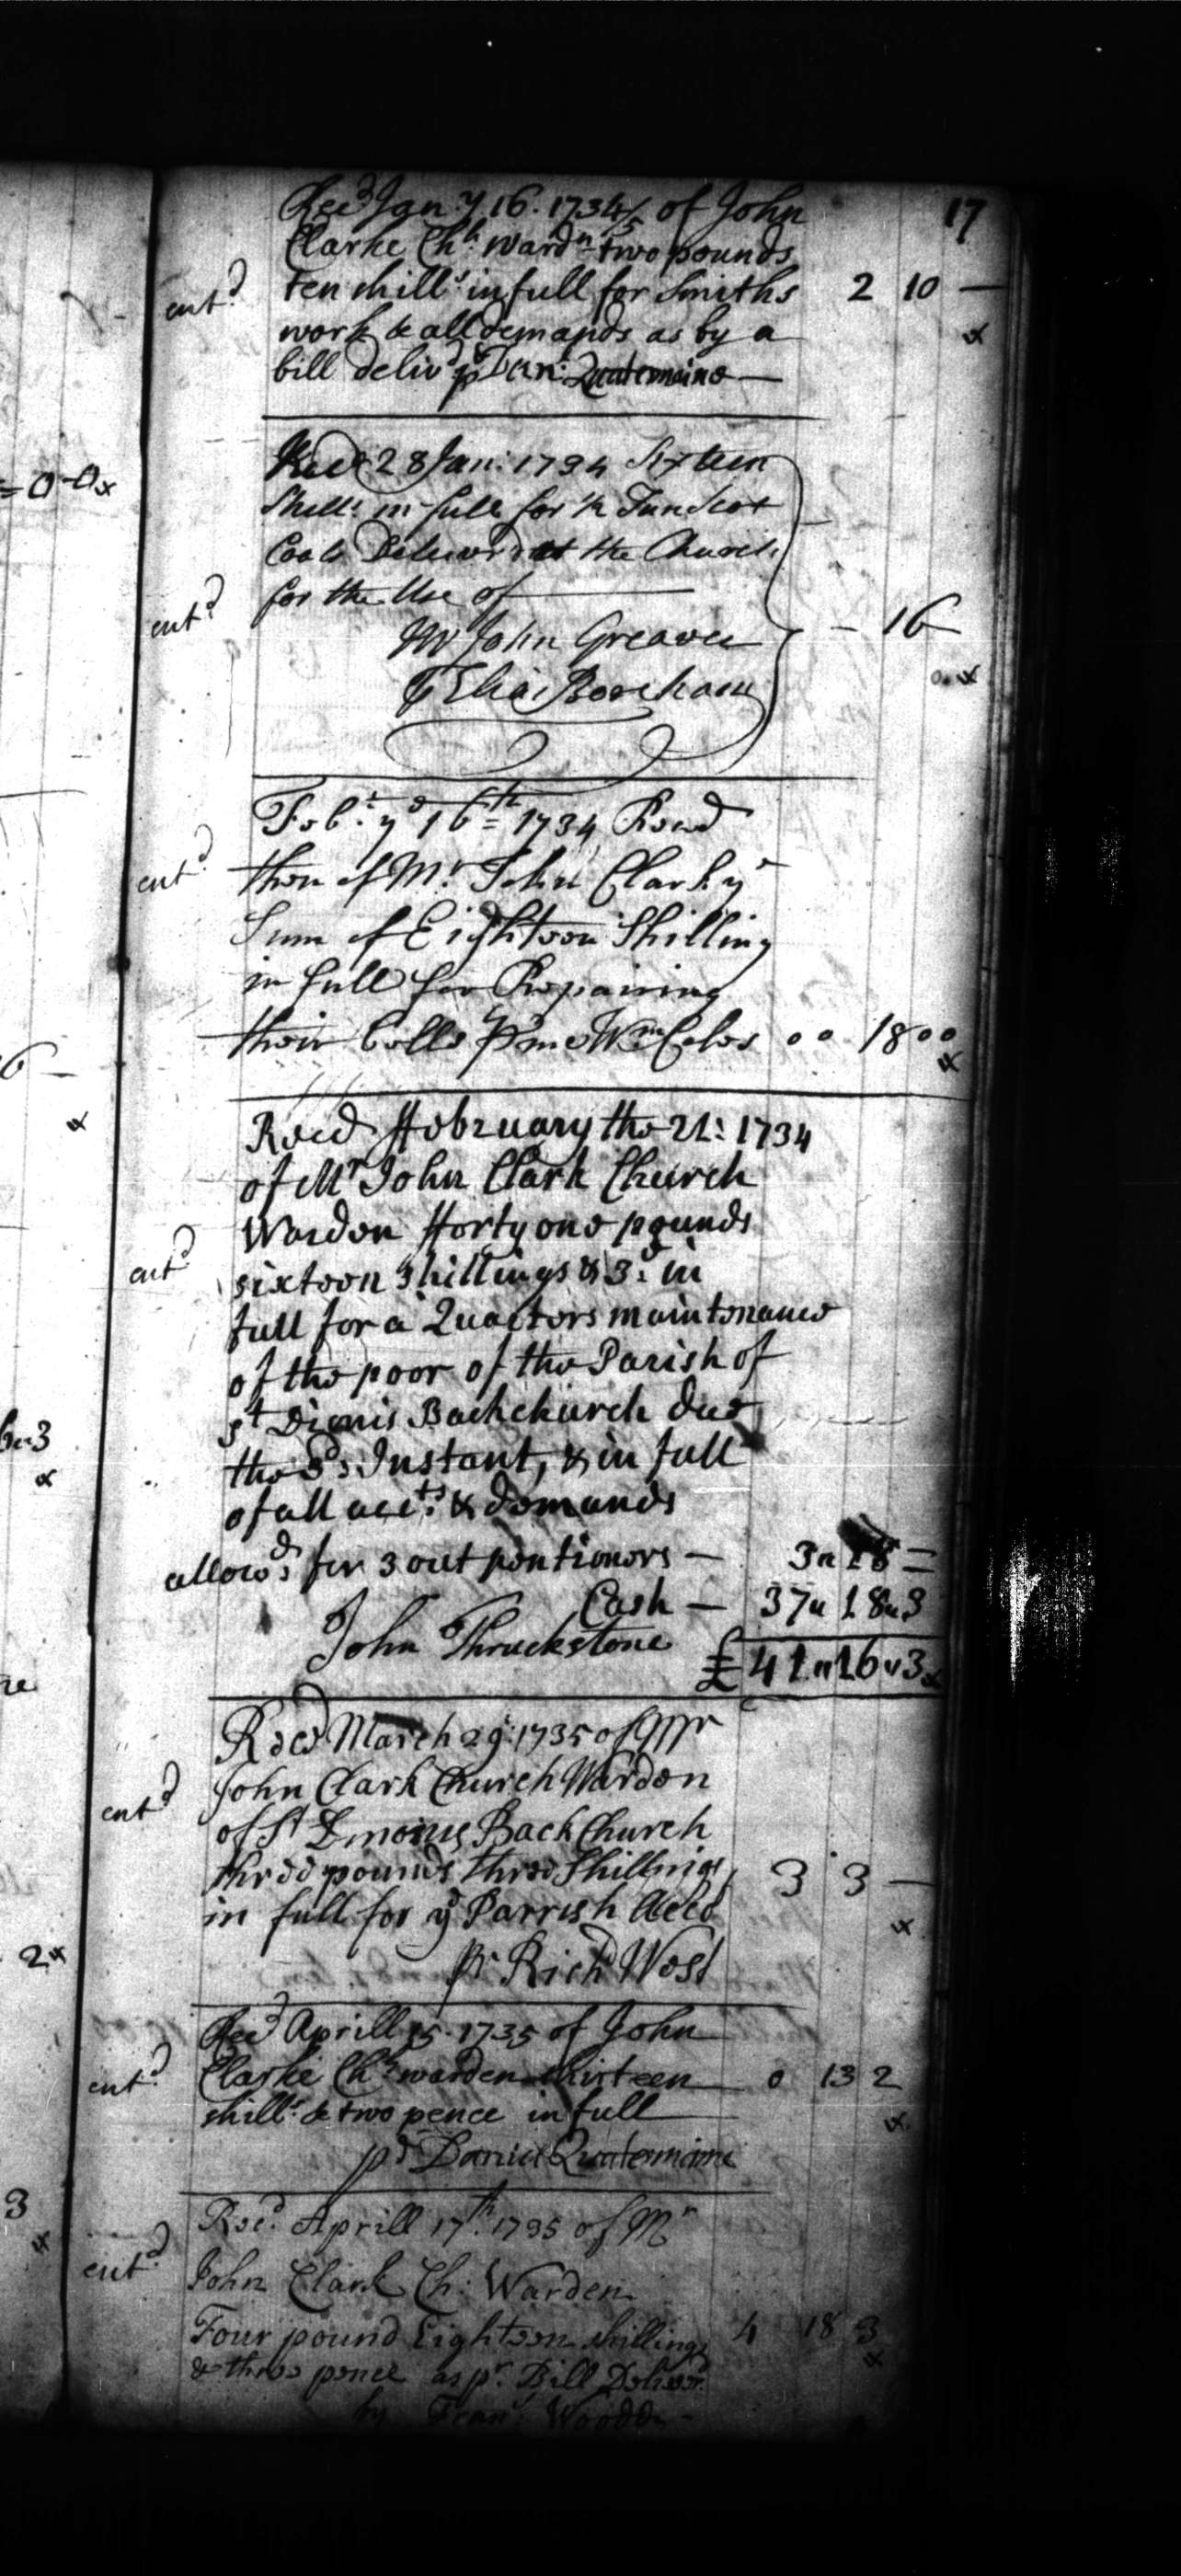 17
Recd Jan:y 16. 1734/5 of John
Clarke Chh: wardn two pounds
ent.d ten shills in full for Smiths 2 10 —
work & all demands as by a
bill delivd p Dan: Quatermaine —
Recd 28 Jan: 1734 Sixteen
Shills in full for
Coals Deliverd at the Church
ent.d for the Use of
Mr John Greaves — 16
p Elias Boreham
Febr: ye 16th 1734 Recd
ent.d then of Mr John Clark ye
Sum of Eighteen Shilling
in full for Repairing
their bells p me Wm Eeles 00 18 00
Recd ffebruary the 21: 1734
of Mr John Clark Church
Warden fforty one pounds
ent.d sixteen shillings & 3d: in
full for a Quarters maintenance
of the poor of the Parish of
St Dionis Backchurch due
the 3d: Instant, & in full
of all acc.ts & demands
allowd for 3 out pentioners — 3 18 =
Cash — 37 18 3
John Thruckstone
£ 41 16 3
Recd March 29: 1735 of Mr
ent.d John Clark Church Warden
of St Back Church
three pounds three Shillings 3 3 —
in full for ye Parrish
pr Richd West
Recd Aprill 15. 1735 of John
ent.d Clarke Chh warden thirteen 0 13 2
shills: & two pence in full
pd Daniel Quatermaine
Recd. Aprill 17th. 1735 of Mr
ent.d John Clark Ch: Warden
Four pound Eighteen shillings 4 18 3
& three pence as pr. Bill Deliverd
by Fran: